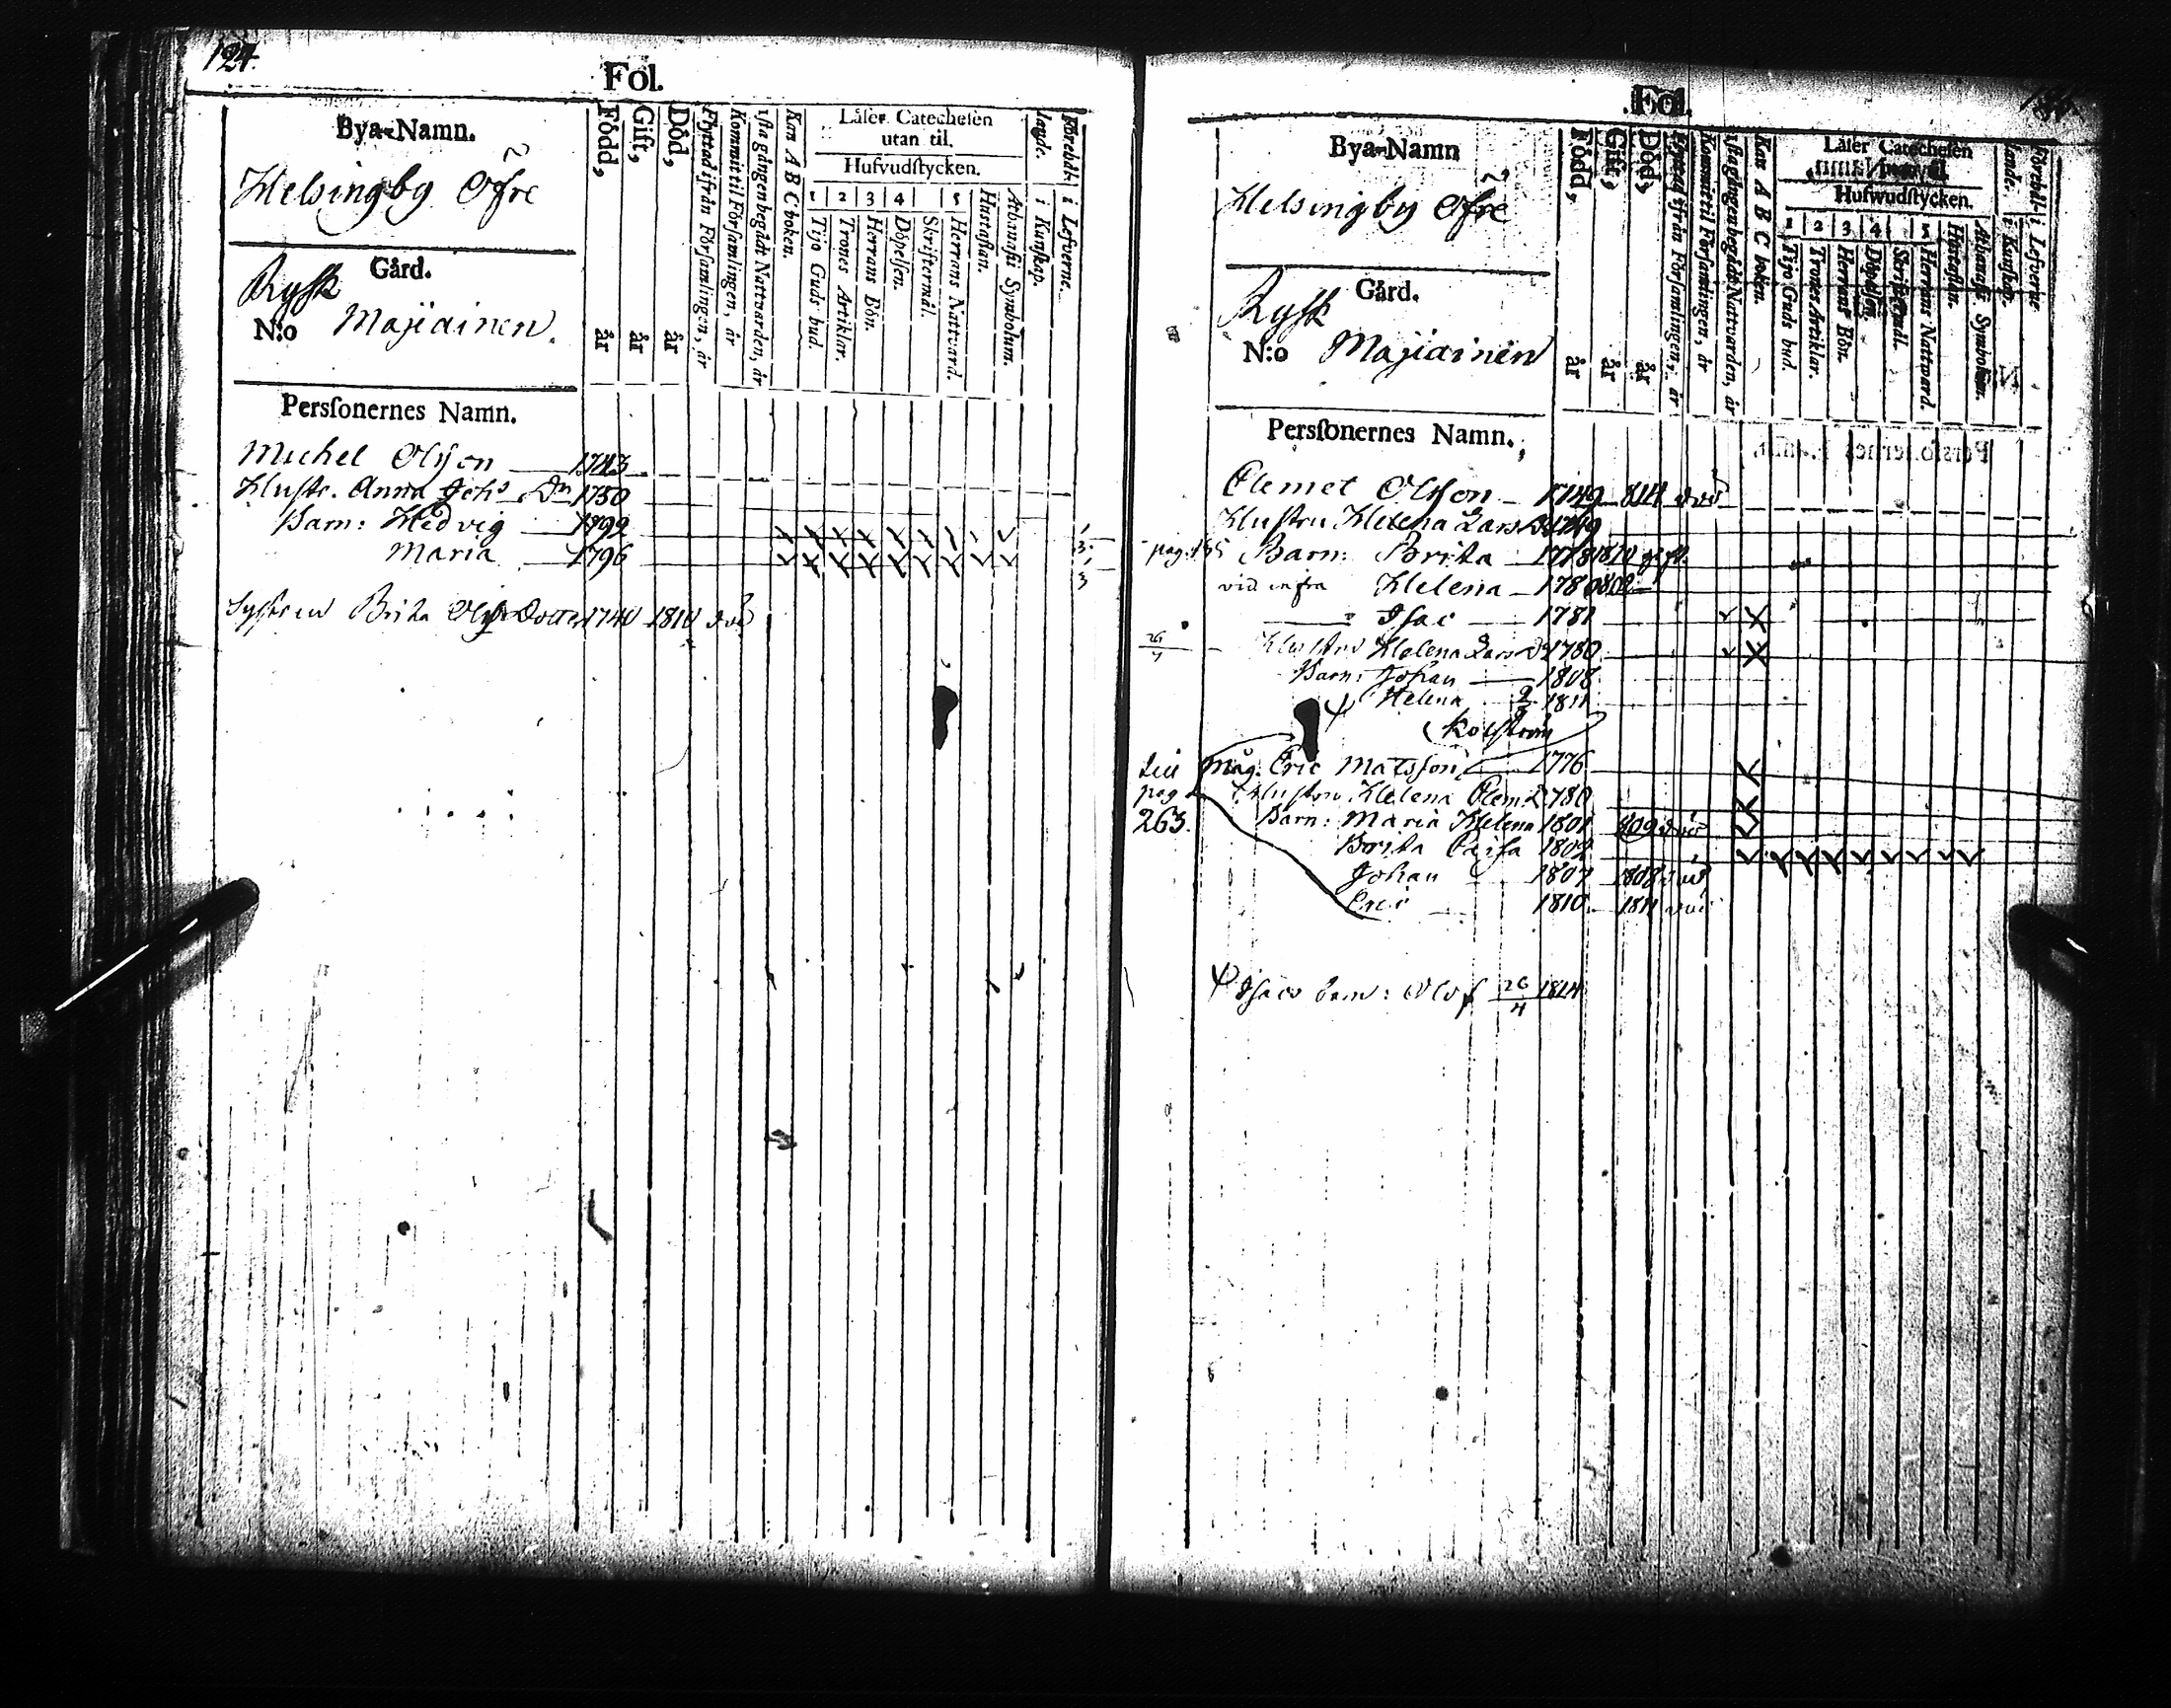 124.
Fol.
Bya-Namn.
Helsingby Öfre
Gård.
Rysk
N:o Majiainen.
Född, år
Gift, år
Död, år
Flyttad ifrån Församlingen, år
Kommit til Församlingen, år
1sta gången begådt Nattvarden, år
Kan A B C boken.
Läser Catechesen
utan til.
Hufvudstycken.
1 2 3 4 5
Tijo Guds bud.
Trones Artiklar.
Herrans Bön.
Döpelsen.
Skriftermål.
Herrans Nattvard.
Hustaflan.
Athanasii Symbolum.
i Kunskap.
i Lefverne.
Personernes Namn.
Michel Olsson 1743
Hustr. Anna Johs Dr 1750
Barn: Hedvig 1792
Maria 1796
Systren Brita Olofs Dotter 1740 1810 död
Fol.
Bya-Namn
Helsingby Öfre
Gård.
Rysk
N:o Majiainen
Född, år
Gift, år
Död, år
ifrån Församlingen, år
Kommit til Församlingen, år
1sta gången begådt Nattvarden, år
Kan A B C boken.
Läser Catechesen
Hufwudstycken.
1 2 3 4 5
Tijo Guds bud.
Trones Artiklar.
Herrans Bön.
Döpelsen.
Skriftermål.
Herrans Nattward.
Hustaflan.
Athanasii Symbolum.
i Kunskap.
i Lefverne
Personernes Namn.
Clemet Olsson 1749 1814 död
Hustru Helena Lars D 1749
Barn: Brita 1778 1810 gift
vid infra Helena 1780
Isac 1781
26/4 Hustru Helena Lars D 1780
Barn: Johan 1808
Helena 1811
Måg. Eric Matsson 1776
pag Hustru Helena Clem. D 1780
263. Barn: Maria Helena 1801 1809 död
Brita Cajsa 1802
Johan 1807 1808 död
Eric 1810 1811 död
Isacs barn: Olof 26/4 1814